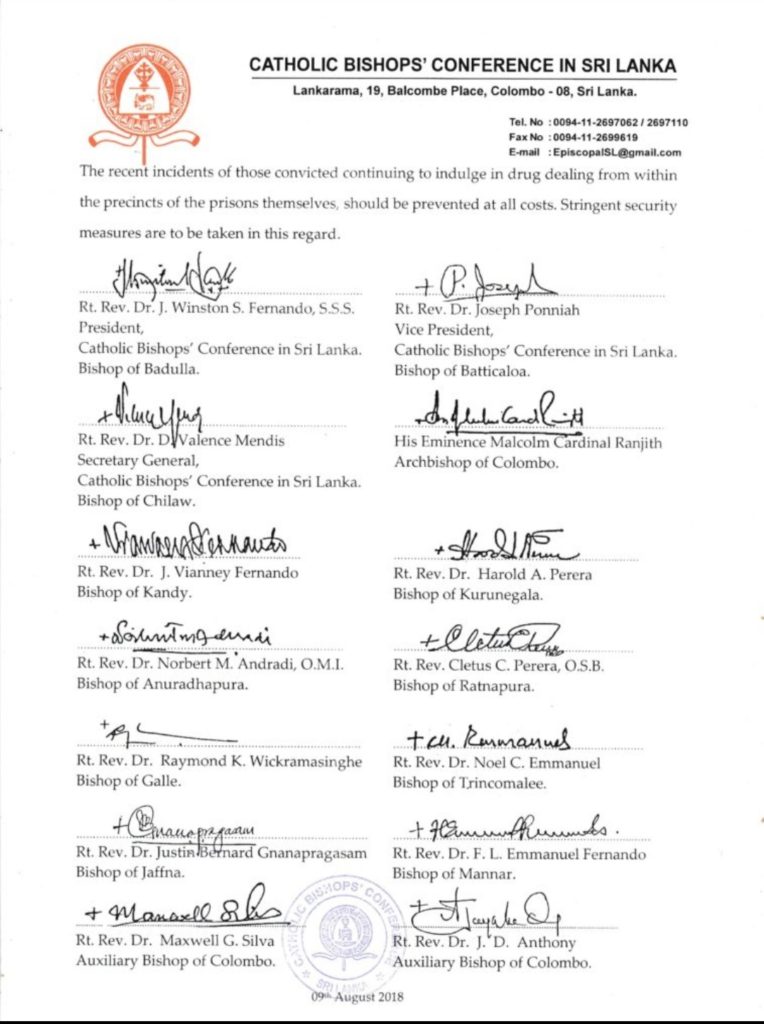 CATHOLIC BISHOPS' CONFERENCE IN SRI LANKA
Lankarama, 19, Balcombe Place, Colombo - 08, Sri Lanka.
Tel. No : 0094-11-2697062 / 2697110
Fax No : 0094-11-2699619
E-mail : EpiscopalSL@gmail.com
The recent incidents of those convicted continuing to indulge in drug dealing from within
the precincts of the prisons themselves, should be prevented at all costs. Stringent security
measures are to be taken in this regard.
Rt. Rev. Dr. J. Winston S. Fernando, S.S.S.
President,
Catholic Bishops' Conference in Sri Lanka.
Bishop of Badulla.
+ P. Joseph
Rt. Rev. Dr. Joseph Ponniah
Vice President,
Catholic Bishops' Conference in Sri Lanka.
Bishop of Batticaloa.
Rt. Rev. Dr. D. Valence Mendis
Secretary General,
Catholic Bishops' Conference in Sri Lanka.
Bishop of Chilaw.
His Eminence Malcolm Cardinal Ranjith
Archbishop of Colombo.
Rt. Rev. Dr. J. Vianney Fernando
Bishop of Kandy.
Rt. Rev. Dr. Harold A. Perera
Bishop of Kurunegala.
Rt. Rev. Dr. Norbert M. Andradi, O.M.I.
Bishop of Anuradhapura.
Rt. Rev. Cletus C. Perera, O.S.B.
Bishop of Ratnapura.
Rt. Rev. Dr. Raymond K. Wickramasinghe
Bishop of Galle.
Rt. Rev. Dr. Noel C. Emmanuel
Bishop of Trincomalee.
Rt. Rev. Dr. Justin Bernard Gnanapragasam
Bishop of Jaffna.
Rt. Rev. Dr. F. L. Emmanuel Fernando
Bishop of Mannar.
Rt. Rev. Dr. Maxwell G. Silva
Auxiliary Bishop of Colombo.
Rt. Rev. Dr. J. D. Anthony
Auxiliary Bishop of Colombo.
CATHOLIC BISHOPS' CONFERENCE
SRI LANKA
09th August 2018